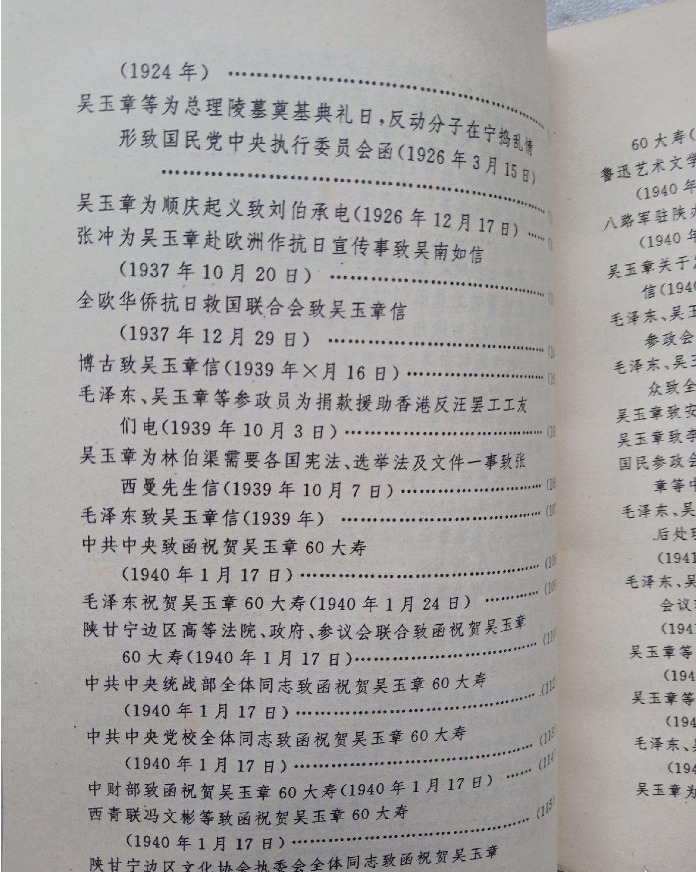 (1924 年) ……………………
吴玉章等为总理陵墓奠基典礼日,反动分子在宁捣乱情
形致国民党中央执行委员会函(1926 年 3 月 15 日)
……………………
吴玉章为顺庆起义致刘伯承电(1926 年 12 月 17 日)……
张冲为吴玉章赴欧洲作抗日宣传事致吴南如信
(1937 年 10 月 20 日) ……………………
全欧华侨抗日救国联合会致吴玉章信
(1937 年 12 月 29 日) ……………………
博古致吴玉章信(1939 年×月 16 日)……………………
毛泽东、吴玉章等参政员为捐款援助香港反汪罢工工友
们电(1939 年 10 月 3 日)……………………
吴玉章为林伯渠需要各国宪法、选举法及文件一事致张
西曼先生信(1939 年 10 月 7 日)……………………
毛泽东致吴玉章信(1939 年) ……………………
中共中央致函祝贺吴玉章 60 大寿
(1940 年 1 月 17 日)……………………
毛泽东祝贺吴玉章 60 大寿(1940 年 1 月 24 日) …………
陕甘宁边区高等法院、政府、参议会联合致函祝贺吴玉章
60 大寿(1940 年 1 月 17 日)……………………
中共中央统战部全体同志致函祝贺吴玉章 60 大寿
(1940 年 1 月 17 日)……………………(112
中共中央党校全体同志致函祝贺吴玉章 60 大寿
(1940 年 1 月 17 日)……………………(113)
中财部致函祝贺吴玉章 60 大寿(1940 年 1 月 17 日) ……(114)
西青联冯文彬等致函祝贺吴玉章 60 大寿
(1940 年 1 月 17 日)……………………(115)
陕甘宁边区文化协会执委会全体同志致函祝贺吴玉章
60 大寿(
鲁迅艺术文学
(1940 年
八路军驻陕
(1940 年
吴玉章关于
信(1940
毛泽东、吴玉
参政会
毛泽东、吴玉
众致全
吴玉章致安
吴玉章致李
国民参政会
章等中
毛泽东、吴
后处理
(1941
毛泽东、吴
会议
(1941
吴玉章等
(194
吴玉章等
(194
毛泽东、吴
(194
吴玉章为